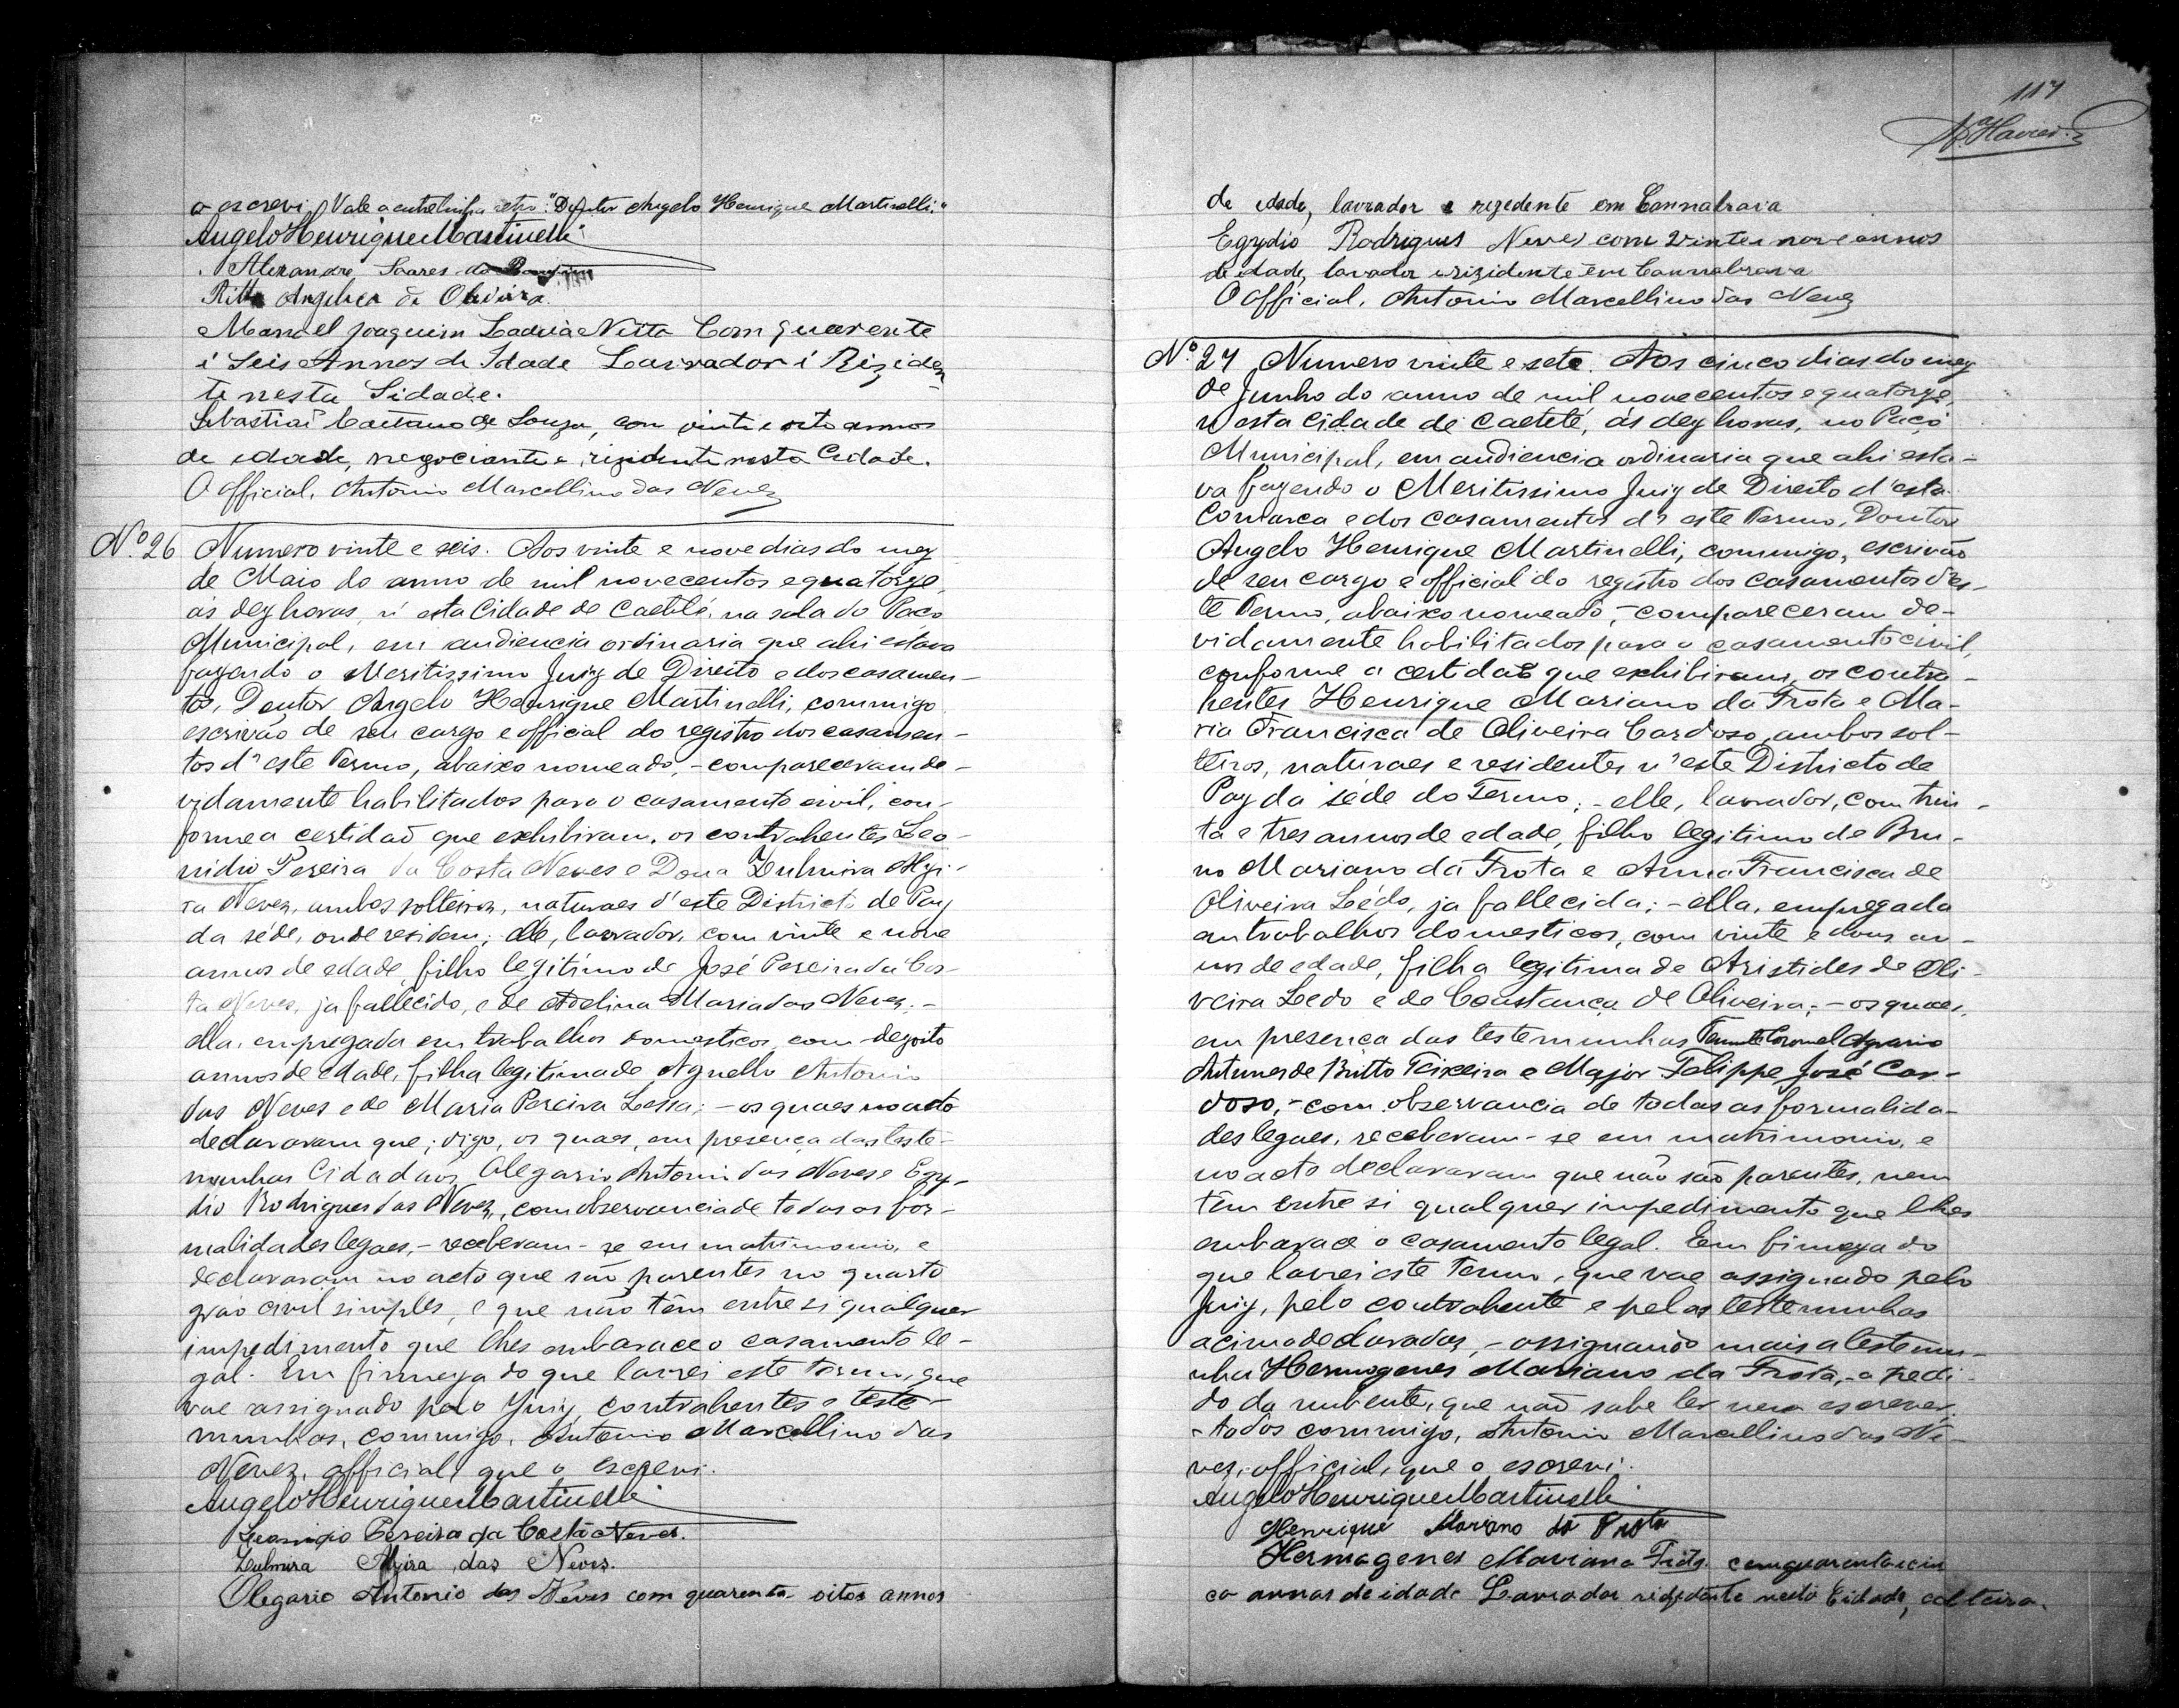 o escrevi. Vale a entrelinha retro: "Doutor Angelo Henrique Martinelli."
Angelo Henrique Martinelli
Alexandre Soares do
Ritta Angelica de Oliveira
Manoel Joaquim Ladeia Netto Com quarente
i Seis Annos de Idade Lavrador i Reziden
te nesta Sidade.
Sebastião Caetano de Souza, com vinte e oito annos
de edade, negociante e, rezidente nesta Cidade.
O official, Antonio Marcellino das Neves
Nº 26 Numero vinte e seis. Aos vinte e nove dias do mez
de Maio do anno de mil novecentos e quatorze,
ás dez horas, n'esta Cidade de Caetité, na sala do Paço
Municipal, em audiencia ordinaria que ahi estava
fazendo o Meritissimo Juiz de Direito e dos casamen-
tos, Doutor Angelo Henrique Martinelli, commigo
escrivão de seu cargo e official do registro dos casamen-
tos d'este Termo, abaixo nomeado, - compareceram de-
vidamente habilitados para o casamento civil, con-
forme a certidaõ que exhibiram, os contrahentes Leo-
nidio Pereira da Costa Neves e Dona Zulmira Alzi-
ra Neves, ambos solteiros, naturaes d'este Districto de Paz
da séde, onde residem; elle, lavrador, com vinte e nove
annos de edade, filho legitimo de José Pereira da Cos-
ta Neves, ja fallecido, e de Adelina Maria das Neves; -
ella, empregada em trabalhos domesticos, com dezoito
annos de edade, filha legitima de Agnello Antonio
das Neves e de Maria Pereira Lessa; - os quaes no acto
declararam que; digo, os quaes, em presença das teste-
munhas Cidadaõs Olegario Antonio das Neves e Egy-
dio Rodrigues das Neves, com observancia de todas as for-
malidades legaes, - receberam-se em matrimonio, e
declararam no acto que são parentes no quarto
gráo civil simples, e que não têm entre si qualquer
impedimento que lhes embarace o casamento le-
gal. Em firmeza do que lavrei este termo, que
vae assignado pelo Juiz, contrahentes e teste-
munhas, commigo, Antonio Marcellino das
Neves, official, que o escrevi.
Angelo Henrique Martinelli
Leonidio Pereira da Costa Neves.
Zulmira Alzira das Neves.
Olegario Antonio das Neves com quarenta oitos annos
117
de edade, lavrador e rezedente em Cannabrava
Egydio Rodrigues Neves com vinte e nove annos
de edade, lavador e rizidente em Cannabrava
O official, Antonio Marcellino das Neves
Nº 27 Numero vinte e sete. Aos cinco dias do mez
de Junho do anno de mil novecentos e quatorze,
n'esta Cidade de Caeteté, ás dez horas, no Paço
Municipal, em audiencia ordinaria que ahi esta-
va fazendo o Meritissimo Juiz de Direito d'esta
Comarca e dos casamentos d'este Termo, Doutor
Angelo Henrique Martinelli, commigo, escrivão
de seu cargo e official do registro dos casamentos d'es-
te Termo, abaixo nomeado, - compareceram de-
vidamente habilitados para o casamento civil,
conforme a certidaõ que exhibiram, os contra-
hentes Henrique Mariano da Frota e Ma-
ria Francisca de Oliveira Cardoso, ambos sol-
teiros, naturaes e residentes n'este Districto de
Paz da séde do Termo; - elle, lavrador, com trin-
ta e tres annos de edade, filho legitimo de Bru-
no Mariano da Frota e Anna Francisca de
Oliveira Lédo, ja fallecida; - ella, empregada
em trabalhos domesticos, com vinte e dous an-
nos de edade, filha legitima de Aristides de Oli-
veira Ledo e de Constança de Oliveira; - os quaes,
em presença das testemunhas Tenente Coronel Agrario
Antunes de Britto Teixeira e Major Felippe José Car-
doso, - com observancia de todas as formalida-
des legaes, receberam-se em matrimonio, e
no acto declararam que não são parentes, nem
têm entre si qualquer impedimento que lhes
embarace o casamento legal. Em firmeza do
que lavrei este termo, que vae assignado pelo
Juiz, pelo contrahente e pelas testemunhas
acima declaradas, - assignando mais a testemu-
nha Hermogenes Mariano da Frota, - a pedi-
do da nubente, que naõ sabe ler nem escrever,
- todos commigo, Antonio Marcellino das Ne-
ves, official, que o escrevi.
Angelo Henrique Martinelli
Henrique Mariano da Frota
Hermagenes Mariano Frota com quarenta e cin
co annos de idade Lavrador rezidente nesta Cidade, solteiro.